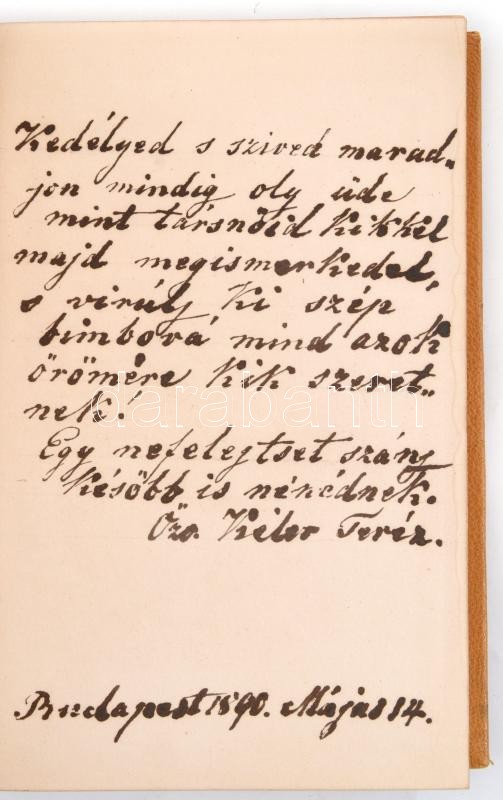 Kedélyed s szived marad„
jon mindig oly üde
mint társnőid kikkel
majd megismerkedel,
s virúlj ki szép
bimbová mind azok
örömére kik szeret„
nek!
darabanth
Egy nefelejtset szánj
később is nénédnek.
Özv. Teréz.
Budapest 1890. Május 14.